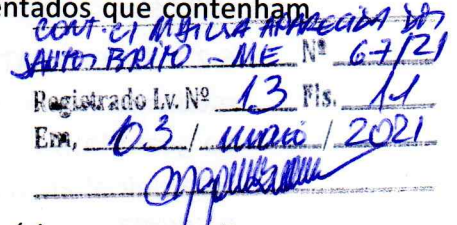 entados que contenham
CONT. CI MAILZA APARECIDA DOS
SANTOS BRITO - ME Nº 67/21
Registrado Lv. Nº 13 Fls. 11
Em, 03 / maio / 2021